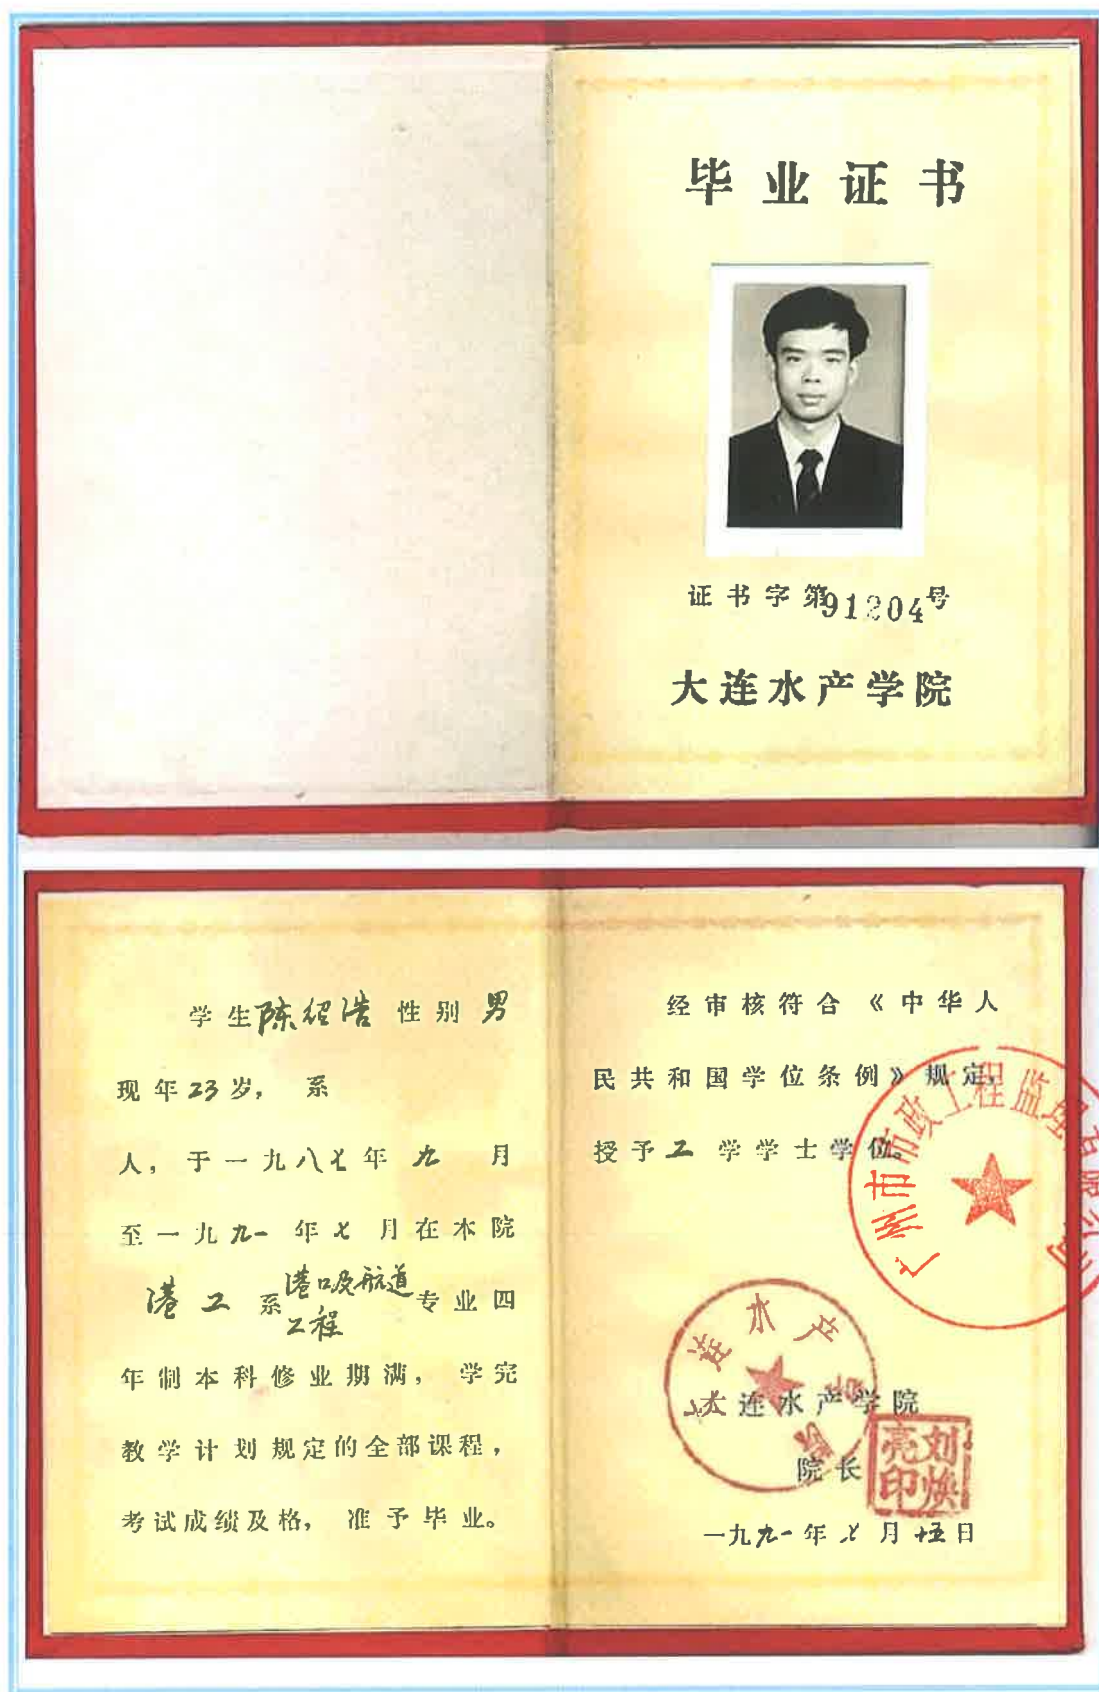 毕业证书
证书字第91204号
大连水产学院
学生陈绍浩 性别 男
现年23岁， 系
人，于一九八七年 九 月
至一九九一 年 七 月在本院
港工 系 港口及航道工程 专业四
年制本科修业期满， 学完
教学计划规定的全部课程，
考试成绩及格， 准予毕业。
经审核符合《中华人
民共和国学位条例》规定，
授予工 学学士学位。
广州市市政工程监理有限公司
大连水产学院
大连水产学院
院长
刘焕亮印
一九九一年 七 月 十五日